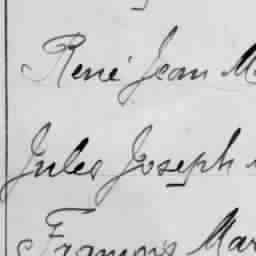 René Jean M
Jules Joseph
François Mar